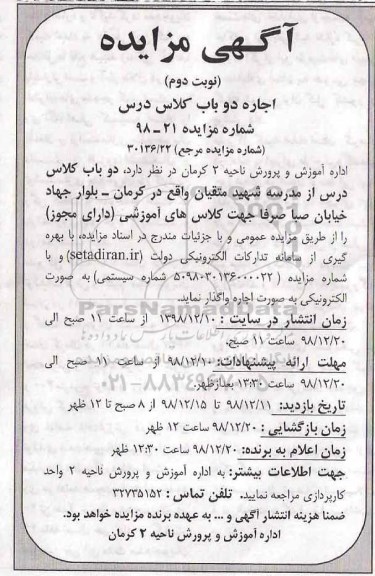 آگهی مزایده
(نوبت دوم)
اجاره دو باب کلاس درس
شماره مزایده ۲۱ – ۹۸
(شماره مزایده مرجع ۳۰۱۳۶/۲۲)
اداره آموزش و پرورش ناحیه ۲ کرمان در نظر دارد، دو باب کلاس
درس از مدرسه شهید متقیان واقع در کرمان – بلوار جهاد
خیابان صبا صرفا جهت کلاس های آموزشی (دارای مجوز)
را از طریق مزایده عمومی و با جزئیات مندرج در اسناد مزایده، با بهره
گیری از سامانه تدارکات الکترونیکی دولت (setadiran.ir) و با
شماره مزایده (۵۰۹۸۰۳۰۱۳۶۰۰۰۰۲۲ شماره سیستمی) به صورت
الکترونیکی به صورت اجاره واگذار نماید.
زمان انتشار در سایت : ۱۳۹۸/۱۲/۱۰ از ساعت ۱۱ صبح الی
۹۸/۱۲/۲۰ ساعت ۱۱ صبح.
مهلت ارائه پیشنهادات: ۹۸/۱۲/۱۰ از ساعت ۱۱ صبح الی
۹۸/۱۲/۲۰ ساعت ۱۳:۳۰ بعدازظهر.
تاریخ بازدید: ۹۸/۱۲/۱۱ تا ۹۸/۱۲/۱۵ از ۸ صبح تا ۱۲ ظهر
زمان بازگشایی : ۹۸/۱۲/۲۰ ساعت ۱۲ ظهر
زمان اعلام به برنده: ۹۸/۱۲/۲۰ ساعت ۱۲:۳۰ ظهر
جهت اطلاعات بیشتر: به اداره آموزش و پرورش ناحیه ۲ واحد
کارپردازی مراجعه نمایید. تلفن تماس : ۳۲۷۳۵۱۵۲
ضمنا هزینه انتشار آگهی و ... به عهده برنده مزایده خواهد بود.
اداره آموزش و پرورش ناحیه ۲ کرمان